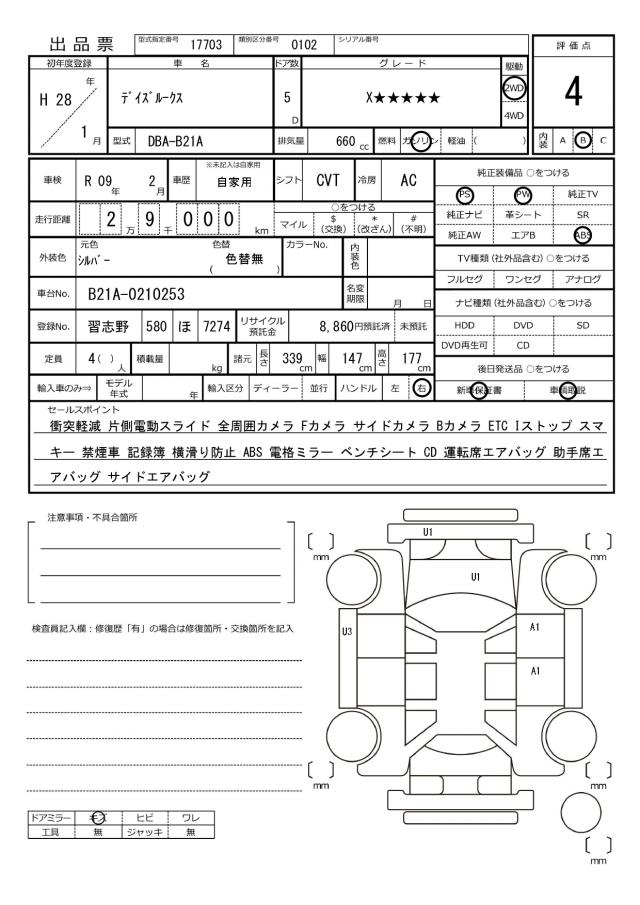 出品票 型式指定番号 17703 類別区分番号 0102 シリアル番号
評価点
4
初年度登録 車名 ドア数 グレード 駆動
H 28 年 1 月
デイズルークス
5 D
X★★★★★
2WD
4WD
型式 DBA-B21A 排気量 660 cc 燃料 ガソリン 軽油 ( )
内装 A B C
車検 R 09 年 2 月 車歴 ※未記入は自家用 自家用 シフト CVT 冷房 AC
走行距離 2 万 9 千 0 0 0 km
○をつける
マイル $(交換) *(改ざん) #(不明)
外装色 元色 シルバー 色替 ( 色替無 ) カラーNo. 内装色
車台No. B21A-0210253 名変期限 月 日
登録No. 習志野 580 ほ 7274 リサイクル預託金 8,860円預託済 未預託
定員 4( )人 積載量 kg 諸元 長さ 339 cm 幅 147 cm 高さ 177 cm
輸入車のみ⇒ モデル年式 年 輸入区分 ディーラー 並行 ハンドル 左 右
純正装備品 ○をつける
PS PW 純正TV
純正ナビ 革シート SR
純正AW エアB ABS
TV種類(社外品含む) ○をつける
フルセグ ワンセグ アナログ
ナビ種類(社外品含む) ○をつける
HDD DVD SD
DVD再生可 CD
後日発送品 ○をつける
新車保証書 車輌取説
セールスポイント
衝突軽減 片側電動スライド 全周囲カメラ Fカメラ サイドカメラ Bカメラ ETC Iストップ スマ
キー 禁煙車 記録簿 横滑り防止 ABS 電格ミラー ベンチシート CD 運転席エアバッグ 助手席エ
アバッグ サイドエアバッグ
注意事項・不具合箇所
検査員記入欄：修復歴「有」の場合は修復箇所・交換箇所を記入
ドアミラー キズ ヒビ ワレ
工具 無 ジャッキ 無
U1
〔 〕mm 〔 〕mm
U1
U3 A1
A1
〔 〕mm 〔 〕mm
〔 〕mm